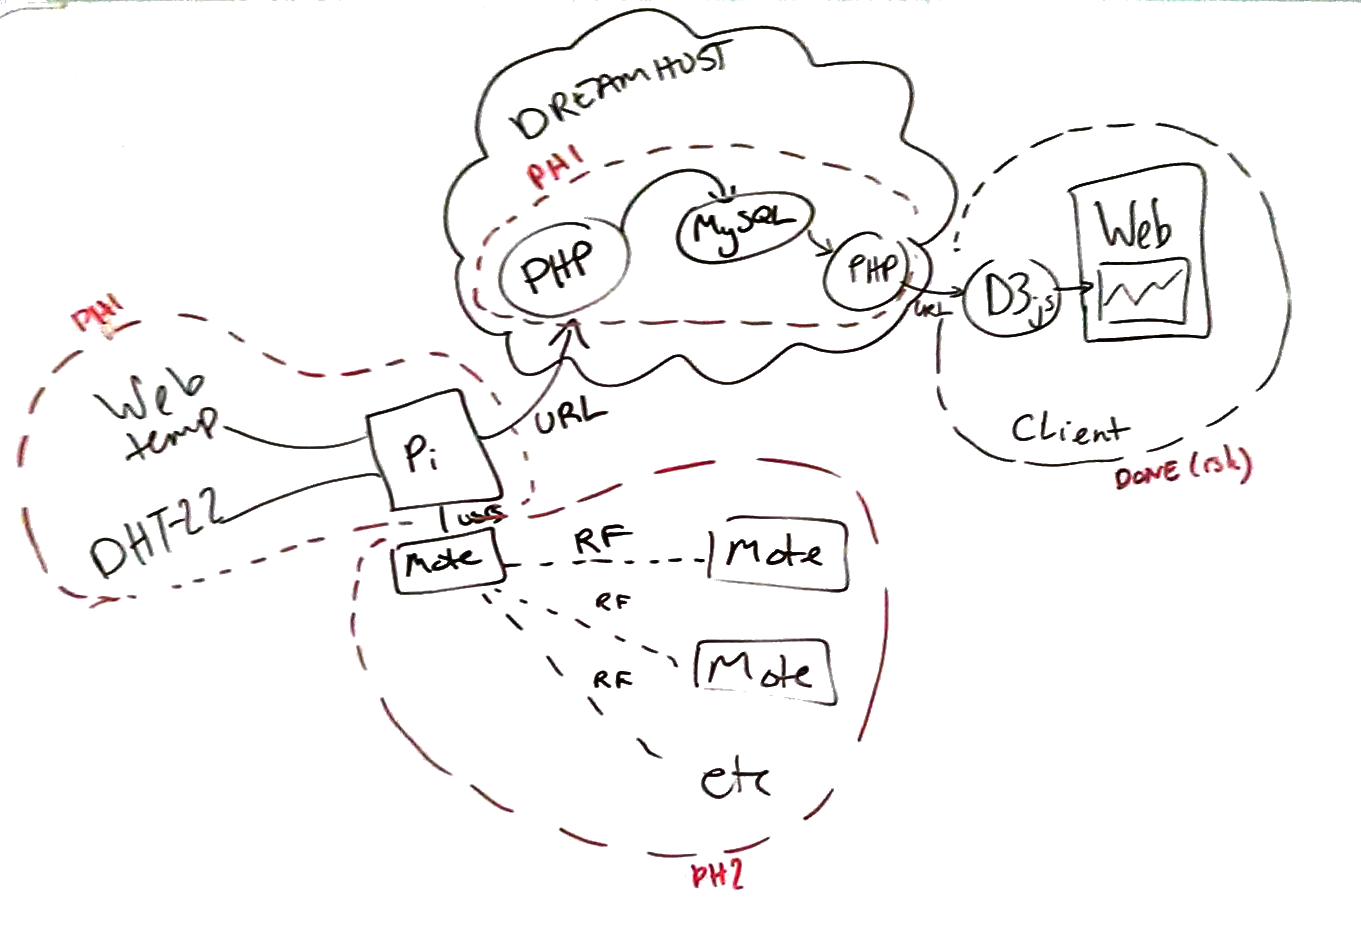 DREAMHOST
PH1
PHP
MySQL
PHP
URL
D3.js
Web
Client
DONE (rsh)
PH1
Web
temp
DHT-22
Pi
URL
Mote
RF
Mote
RF
Mote
RF
etc
PH2